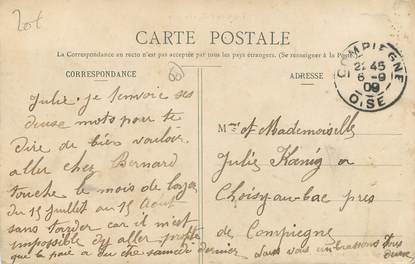 CARTE POSTALE
La Correspondance au recto n'est pas acceptée par tous les pays étrangers. (Se renseigner à la Poste)
CORRESPONDANCE
ADRESSE
COMPIEGNE
22 45
6 - 9
09
OISE
60
Julie. je t'envoie ses
deuse mots pour te
dire de bien vouloir
aller cher Bernard
touche le mois de loyer
du 15 Juillet au 15 Aout
sans tarder car il m'est
impossible d'y aller
que la paie a du che samedi dernier
Mme et Mademoiselle
Julie Kœnig
Choisy-au-bac pres
de Compiegne
vous embrassons tous
deuse